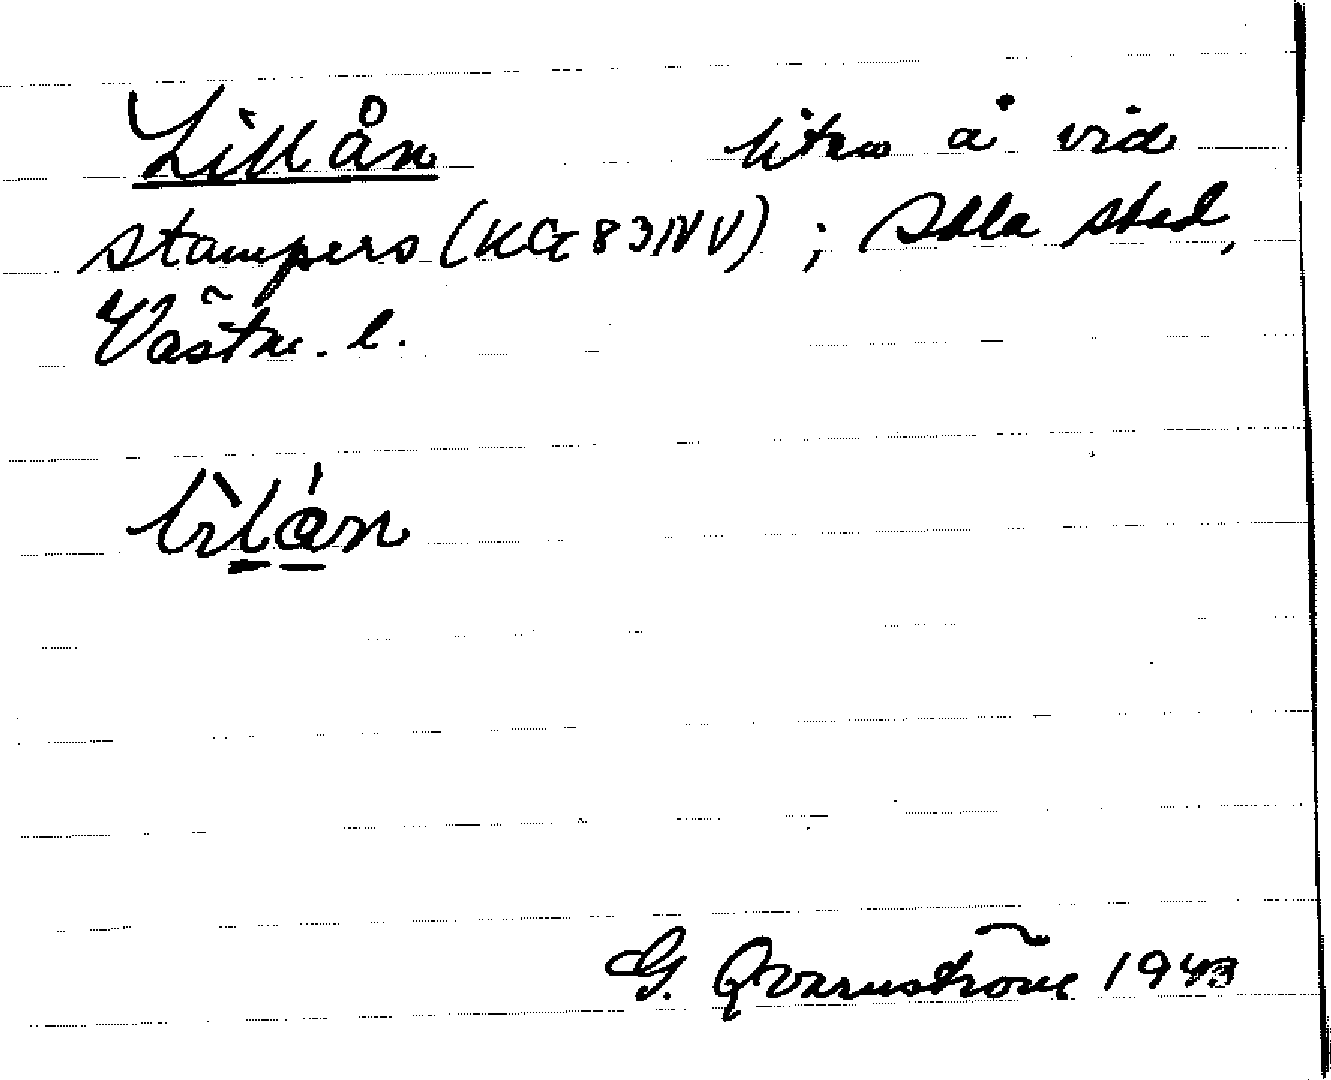 Lillån liten å vid
Stampers (KG 83NV); Sala stad,
Västm. l.
lìlán
G. Qvarnström 1943